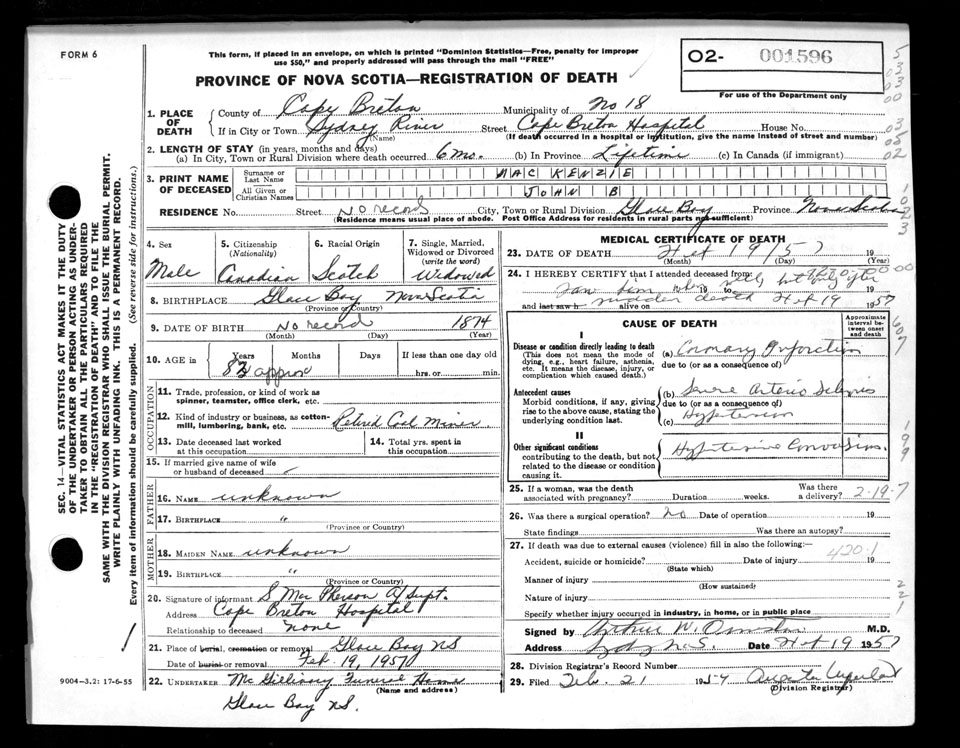 FORM 6
This form, if placed in an envelope, on which is printed "Dominion Statistics—Free, penalty for improper
use $50," and properly addressed will pass through the mail "FREE"
O2- 001596
For use of the Department only
PROVINCE OF NOVA SCOTIA—REGISTRATION OF DEATH
1. PLACE OF DEATH
County of Cape Breton Municipality of No 18
If in City or Town Sydney River Street Cape Breton Hospital House No.
(Name) (If death occurred in a hospital or institution, give the name instead of street and number)
2. LENGTH OF STAY (in years, months and days)
(a) In City, Town or Rural Division where death occurred 6 mo. (b) In Province Lifetime (c) In Canada (if immigrant)
3. PRINT NAME OF DECEASED
Surname or Last Name MAC KENZIE
All Given or Christian Names JOHN B
RESIDENCE No. Street No record City, Town or Rural Division Glace Bay Province Nova Scotia
(Residence means usual place of abode. Post Office Address for residents in rural parts not sufficient)
4. Sex Male
5. Citizenship (Nationality) Canadian
6. Racial Origin Scotch
7. Single, Married, Widowed or Divorced (write the word) Widowed
8. BIRTHPLACE Glace Bay Nova Scotia
(Province or Country)
9. DATE OF BIRTH No record 1874
(Month) (Day) (Year)
10. AGE in Years Months Days If less than one day old
82 approx hrs. or min.
OCCUPATION
11. Trade, profession, or kind of work as
spinner, teamster, office clerk, etc.
12. Kind of industry or business, as cotton-
mill, lumbering, bank, etc. Retired Coal Miner
13. Date deceased last worked
at this occupation
14. Total yrs. spent in
this occupation
15. If married give name of wife
or husband of deceased
FATHER
16. NAME unknown
17. BIRTHPLACE "
(Province or Country)
MOTHER
18. MAIDEN NAME unknown
19. BIRTHPLACE "
(Province or Country)
20. Signature of informant S Mac Pherson A/Supt.
Address Cape Breton Hospital
Relationship to deceased none
21. Place of burial, cremation or removal Glace Bay NS
Date of burial or removal Feb. 19, 1957
22. UNDERTAKER Mc Gillivray Funeral Home
(Name and address)
Glace Bay NS.
MEDICAL CERTIFICATE OF DEATH
23. DATE OF DEATH Feb 19/57 19
(Month) (Day) (Year)
24. I HEREBY CERTIFY that I attended deceased from:
19
and last saw h alive on sudden death Feb 19 1957
CAUSE OF DEATH
Approximate interval between onset and death
I
Disease or condition directly leading to death
(This does not mean the mode of
dying, e.g., heart failure, asthenia,
etc. It means the disease, injury, or
complication which caused death.)
(a) Coronary Infarction
due to (or as a consequence of)
Antecedent causes
Morbid conditions, if any, giving
rise to the above cause, stating the
underlying condition last.
(b) Severe Arterio Sclerosis
due to (or as a consequence of)
(c) Hypertension
II
Other significant conditions
contributing to the death, but not
related to the disease or condition
causing it.
Hypertensive Convulsions.
25. If a woman, was the death
associated with pregnancy? Duration weeks. Was there a delivery? 2-19-7
26. Was there a surgical operation? no Date of operation 19
State findings Was there an autopsy?
27. If death was due to external causes (violence) fill in also the following:—
420.1
Accident, suicide or homicide? Date of injury 19
(State which)
Manner of injury
(How sustained)
Nature of injury
Specify whether injury occurred in industry, in home, or in public place
Signed by Arthur W. Ormiston M.D.
Address N.S. Date Feb 19 1957
28. Division Registrar's Record Number
29. Filed Feb. 21 1957 Augusta
(Division Registrar)
SEC. 14—VITAL STATISTICS ACT MAKES IT THE DUTY
OF THE UNDERTAKER OR PERSON ACTING AS UNDER-
TAKER TO OBTAIN ALL THE PARTICULARS REQUIRED
IN THE "REGISTRATION OF DEATH" AND TO FILE THE
SAME WITH THE DIVISION REGISTRAR WHO SHALL ISSUE THE BURIAL PERMIT.
WRITE PLAINLY WITH UNFADING INK. THIS IS A PERMANENT RECORD.
Every item of information should be carefully supplied. (See reverse side for instructions.)
9004—3.2: 17-6-55